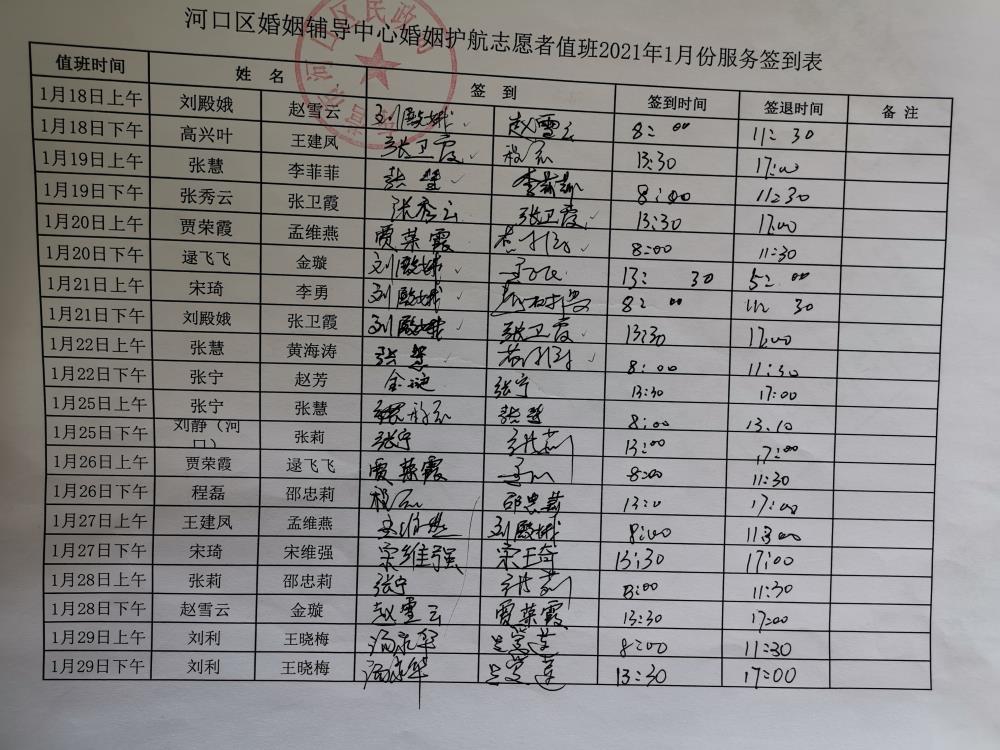 河口区婚姻辅导中心婚姻护航志愿者值班2021年1月份服务签到表
值班时间 姓 名 签 到 签到时间 签退时间 备 注
1月18日上午 刘殿娥 赵雪云 刘殿娥 赵雪云 8:00 11:30
1月18日下午 高兴叶 王建凤 张卫霞 程磊 13:30 17:00
1月19日上午 张慧 李菲菲 张慧 李菲菲 8:00 11:30
1月19日下午 张秀云 张卫霞 张秀云 张卫霞 13:30 17:00
1月20日上午 贾荣霞 孟维燕 贾荣霞 8:00 11:30
1月20日下午 逯飞飞 金璇 刘殿娥 13:30 5:00
1月21日上午 宋琦 李勇 刘殿娥 8:00 11:30
1月21日下午 刘殿娥 张卫霞 刘殿娥 张卫霞 13:30 17:00
1月22日上午 张慧 黄海涛 张慧 8:00 11:30
1月22日下午 张宁 赵芳 金璇 张宁 13:30 17:00
1月25日上午 张宁 张慧 张慧 8:00 13:10
1月25日下午 刘静（河口） 张莉 张宁 张莉 13:00 17:00
1月26日上午 贾荣霞 逯飞飞 贾荣霞 8:00 11:30
1月26日下午 程磊 邵忠莉 程磊 邵忠莉 13:0 17:00
1月27日上午 王建凤 孟维燕 刘殿娥 8:00
1月27日下午 宋琦 宋维强 宋维强 宋琦 13:30 17:00
1月28日上午 张莉 邵忠莉 张宁 张莉 8:00 11:30
1月28日下午 赵雪云 金璇 赵雪云 贾荣霞 13:30 17:00
1月29日上午 刘利 王晓梅 8:00 11:30
1月29日下午 刘利 王晓梅 13:30 17:00